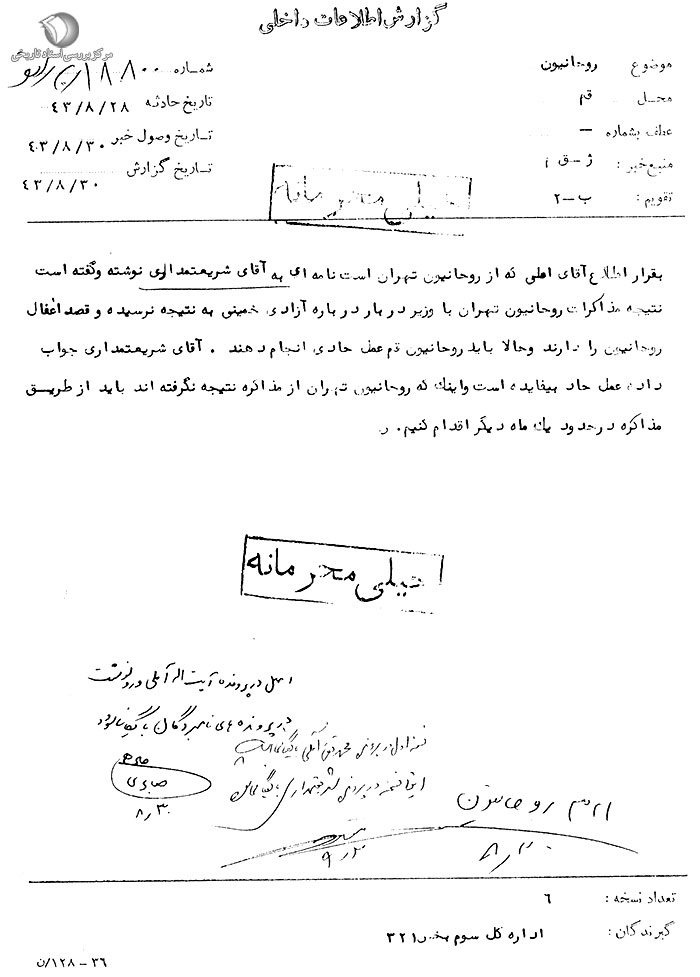 گزارش اطلاعات داخلی
مرکز بررسی اسناد تاریخی
موضوع روحانیون
محل قم
عطف بشماره —
منبع خبر :
تقویم : ب-۲
شماره ۱۸۸۰۰
تاریخ حادثه ۴۳/۸/۲۸
تاریخ وصول خبر ۴۳/۸/۳۰
تاریخ گزارش ۴۳/۸/۳۰
خیلی محرمانه
بقرار اطلاع آقای املی که از روحانیون تهران است نامه ای به آقای شریعتمداری نوشته وگفته است
نتیجه مذاکرات روحانیون تهران با وزیر دربار درباره آزادی خمینی به نتیجه نرسیده و قصد اغفال
روحانیون را دارند وحالا باید روحانیون قم عمل حادی انجام دهند . آقای شریعتمداری جواب
داده عمل حاد بیفایده است واینک که روحانیون تهران از مذاکره نتیجه نگرفته اند باید از طریق
مذاکره درحدود یک ماه دیگر اقدام کنیم. ر
خیلی محرمانه
اصل در پرونده آیت اله آملی و رونوشت
در پرونده های نامبردگان بایگانی شود
نسخه اول در پرونده محمد تقی آملی بایگانی
این نسخه در پرونده شریعتمداری بایگانی
صابری
۸/۳۰
۳۲۱ روحانیون
۸/۳۰
۹/۳
تعداد نسخه : ۶
گیرندگان : اداره کل سوم بخش ۳۲۱
۳۶ - ۱۲۸/ن